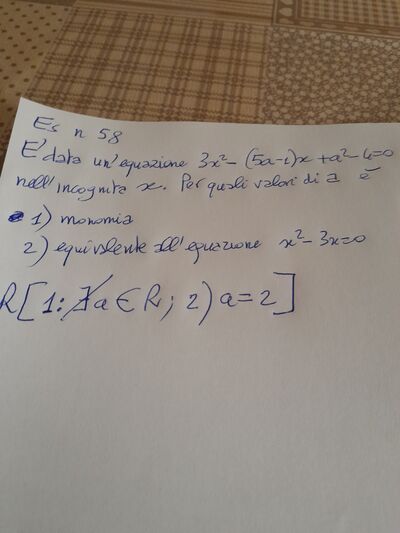 Es n 58
E' data un'equazione 3x²-(5a-1)x+a²-4=0
nell'incognita x. Per quali valori di a è
1) monomia
2) equivalente all'equazione x²-3x=0
R[1:∄a∈R; 2) a=2]